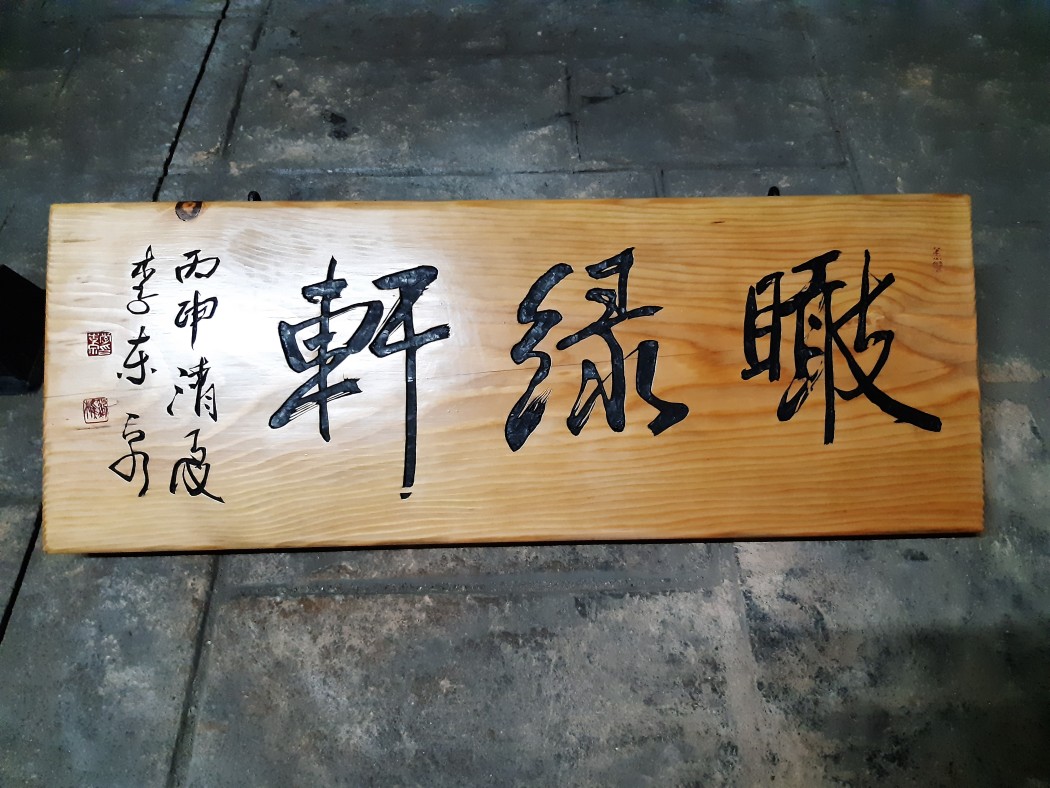 瞰绿軒
丙申清夏
李东泉